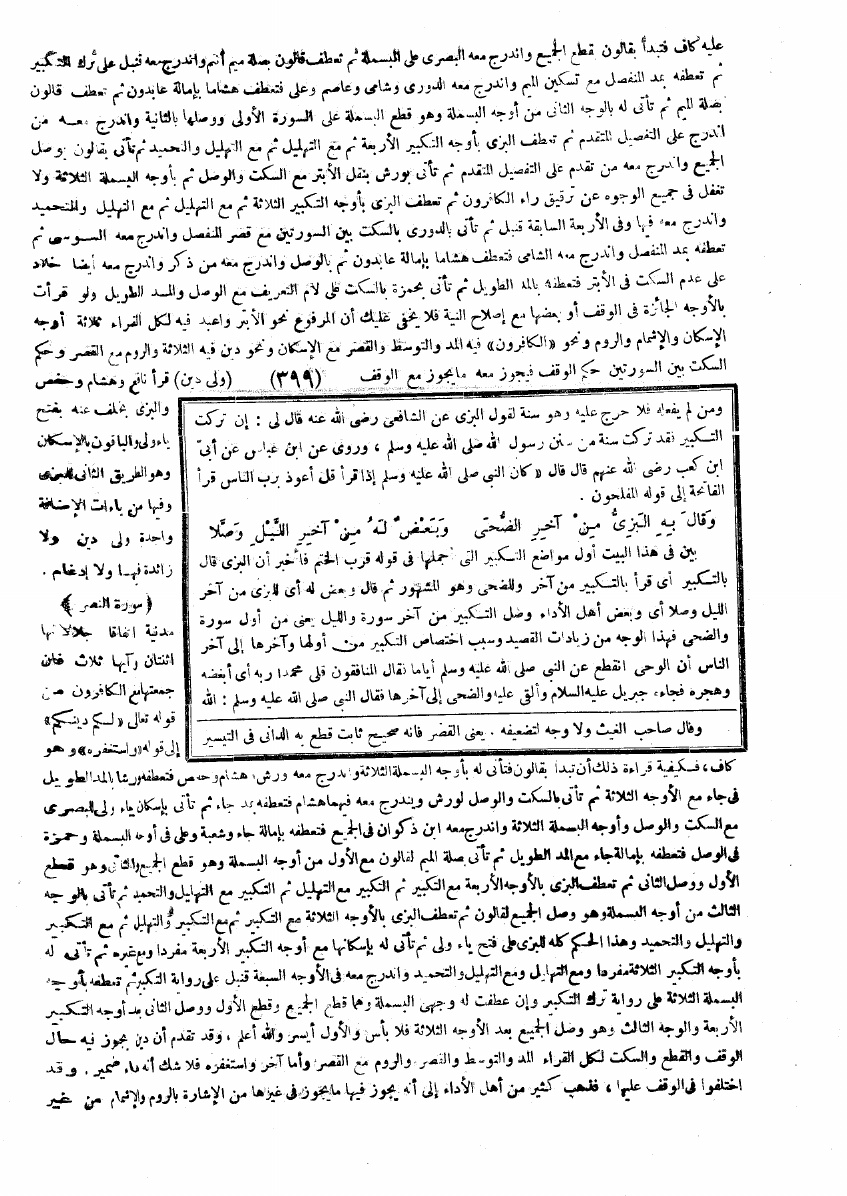 عليه كاف فتبدأ بقالون بقطع الجميع واندرج معه البصرى على البسملة ثم تعطف قالون بصلة ميم أنتم واندرج معه قنبل على ترك التكبير
ثم تعطفه بمد المنفصل مع تسكين الميم واندرج معه الدورى وشامى وعاصم وعلى فتعطف هشاما بإمالة عابدون ثم تعطف قالون
بصلة الميم ثم تأتى له بالوجه الثانى من أوجه البسملة وهو قطع البسملة على السورة الأولى ووصلها بالثانية واندرج معه من
اندرج على التفصيل المتقدم ثم تعطف البزى بأوجه التكبير الأربعة ثم مع التهليل ثم مع التهليل والتحميد ثم تأتى بقالون بوصل
الجميع واندرج معه من تقدم على التفصيل المتقدم ثم تأتى بورش بنقل الأبتر مع السكت والوصل ثم بأوجه البسملة الثلاثة ولا
تغفل فى جميع الوجوه عن ترقيق راء الكافرون ثم تعطف البزى بأوجه التكبير الثلاثة ثم مع التهليل ثم مع التهليل والتحميد
واندرج معه فيها وفى الأربعة السابقة قنبل ثم تأتى بالدورى بالسكت بين السورتين مع قصر المنفصل واندرج معه السوسى ثم
تعطفه بمد المنفصل واندرج معه الشامى فتعطف هشاما بإمالة عابدون ثم بالوصل واندرج معه من ذكر واندرج معه أيضا خلاد
على عدم السكت فى الأبتر فتعطفه بالمد الطويل ثم تأتى بحمزة بالسكت على لام التعريف مع الوصل والمد الطويل ولو قرأت
بالأوجه الجائزة فى الوقف أو بعضها مع إصلاح النية فلا يخفى عليك أن المرفوع نحو الأبتر واعبد فيه لكل القراء ثلاثة أوجه
الإسكان والإشمام والروم ونحو «الكافرون» فيه المد والتوسط والقصر مع الإسكان ونحو دين فيه الثلاثة والروم مع القصر وحكم
السكت بين السورتين حكم الوقف فيجوز معه ما يجوز مع الوقف (٣٩٩) (ولى دين) قرأ نافع وهشام وحفص
ومن لم يفعله فلا حرج عليه وهو سنة لقول البزى عن الشافعى رضى الله عنه قال لى : إن تركت
التكبير فقد تركت سنة من سنن رسول الله صلى الله عليه وسلم ، وروى عن ابن عباس عن أبىّ
ابن كعب رضى الله عنهم قال قال « كان النبى صلى الله عليه وسلم إذا قرأ قل أعوذ برب الناس قرأ
الفاتحة إلى قوله المفلحون .
وَقَالَ بِهِ الْبَزِّىُّ مِنْ آخِرِ الضُّحَى وَبَعْضٌ لَهُ مِنْ آخِرِ اللَّيْلِ وَصَّلَا
بين فى هذا البيت أول مواضع التكبير التى أجملها فى قوله قرب الختم فأخبر أن البزى قال
بالتكبير أى قرأ بالتكبير من آخر والضحى وهو المشهور ثم قال وبعض له أى للبزى من آخر
الليل وصلا أى وبعض أهل الأداء وصل التكبير من آخر سورة والليل يعنى من أول سورة
والضحى فهذا الوجه من زيادات القصيد وسبب اختصاص التكبير من أولها وآخرها إلى آخر
الناس أن الوحى انقطع عن النبى صلى الله عليه وسلم أياما فقال المنافقون قلى محمدا ربه أى أبغضه
وهجره فجاءه جبريل عليه السلام وألقى عليه والضحى إلى آخرها فقال النبى صلى الله عليه وسلم : الله
وقال صاحب الغيث ولا وجه لتضعيفه . يعنى القصر فانه صحيح ثابت قطع به الدانى فى التيسير
والبزى بخلف عنه بفتح
ياء ولى والباقون بالإسكان
وهو الطريق الثانى للبزى
وفيها من ياءات الإضافة
واحدة ولى دين ولا
زائدة فيها ولا إدغام .
﴿سورة النصر﴾
مدنية اتفاقا جلالاتها
اثنتان وآيها ثلاث فان
جمعتها مع الكافرون من
قوله تعالى «لكم دينكم»
إلى قوله «واستغفره» وهو
كاف ، فكيفية قراءة ذلك أن تبدأ بقالون فتأتى له بأوجه البسملة الثلاثة واندرج معه ورش وهشام وحفص فتعطف ورشا بالمد الطويل
فى جاء مع الأوجه الثلاثة ثم تأتى بالسكت والوصل لورش ويندرج معه فيهما هشام فتعطفه بمد جاء ثم تأتى بإسكان ياء ولى للبصرى
مع السكت والوصل وأوجه البسملة الثلاثة واندرج معه ابن ذكوان فى الجميع فتعطفه بإمالة جاء وشعبة وعلى فى أوجه البسملة وحمزة
فى الوصل فتعطفه بإمالة جاء مع المد الطويل ثم تأتى بصلة الميم لقالون مع الأول من أوجه البسملة وهو قطع الجميع والثانى وهو قطع
الأول ووصل الثانى ثم تعطف البزى بالأوجه الأربعة مع التكبير ثم التكبير مع التهليل ثم التكبير مع التهليل والتحميد ثم تأتى بالوجه
الثالث من أوجه البسملة وهو وصل الجميع لقالون ثم تعطف البزى بالأوجه الثلاثة مع التكبير ثم مع التكبير والتهليل ثم مع التكبير
والتهليل والتحميد وهذا الحكم كله للبزى على فتح ياء ولى ثم تأتى له بإسكانها مع أوجه التكبير الأربعة مفردا ومع غيره ثم تأتى له
بأوجه التكبير الثلاثة مفردا ومع التهليل ومع التهليل والتحميد واندرج معه فى الأوجه السبعة قنبل على رواية التكبير ثم تعطفه بأوجه
البسملة الثلاثة على رواية ترك التكبير وإن عطفت له وجهى البسملة وهما قطع الجميع وقطع الأول ووصل الثانى بعد أوجه التكبير
الأربعة والوجه الثالث وهو وصل الجميع بعد الأوجه الثلاثة فلا بأس والأول أيسر والله أعلم ، وقد تقدم أن دين يجوز فيه حال
الوقف والقطع والسكت لكل القراء المد والتوسط والقصر والروم مع القصر وأما آخر واستغفره فلا شك أنه هاء ضمير . وقد
اختلفوا فى الوقف عليها ، فذهب كثير من أهل الأداء إلى أنه يجوز فيها ما يجوز فى غيرها من الإشارة بالروم والإشمام من غير